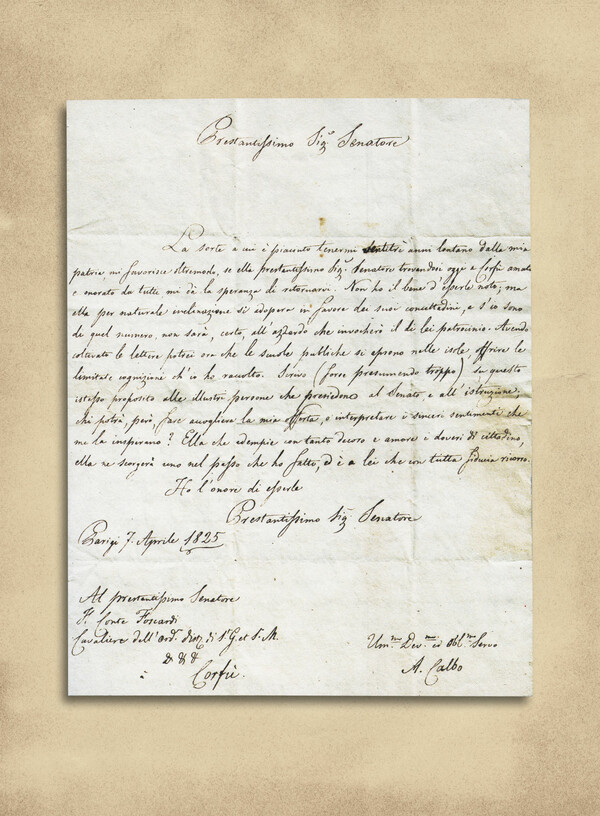 Prestantissimo Sig.r Senatore
La sorte a cui è piaciuto tenermi ventitrè anni lontano dalla mia
patria mi favorisce oltremodo, se ella prestantissimo Sig.r Senatore trovandosi oggi a Corfù amato
e onorato da tutti mi dà la speranza di ritornarvi. Non ho il bene d'esserle noto; ma
ella per naturale inclinazione si adopera in favore dei suoi concittadini, e s'io sono
di quel numero, non sarà, certo, all'azzardo che invocherò il di lei patrocinio. Avendo
coltivato le lettere potrei ora che le scuole publiche si aprono nelle isole, offrire le
limitate cognizioni ch'io ho raccolto. Scrivo (forse presumendo troppo) su questo
istesso proposito alle illustri persone che presiedono al Senato e all'istruzione;
chi potrà, però, fare accogliere la mia offerta, o interpretare i sinceri sentimenti che
me la inspirano? Ella che adempie con tanto decoro e amore i doveri di cittadino,
ella ne scorgerà uno nel passo che ho fatto, ed è a lei che con tutta fiducia ricorro.
Ho l'onore di esserle
Prestantissimo Sig.r Senatore
Parigi 7. Aprile 1825
Al prestantissimo Senatore
Il Conte Foscardi
Cavaliere dell'ord. di S.G. et S.M
& & &
à Corfù.
Um.mo Dev.mo ed obl.mo Servo
A. Calbo